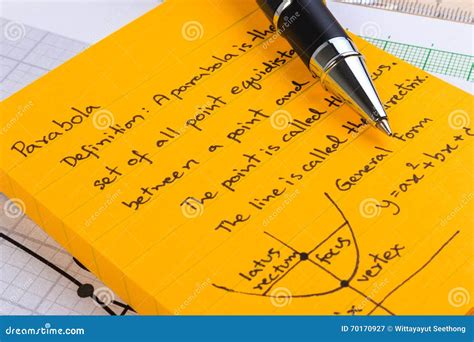 Parabola
Definition: A parabola is the
set of all point equidist
between a point and
The point is called the focus.
The line is called the directrix
General form
y=ax²+bx+
latus
rectum
focus
vertex
ix
dreamstime.com
ID 70170927 © Wittayayut Seethong